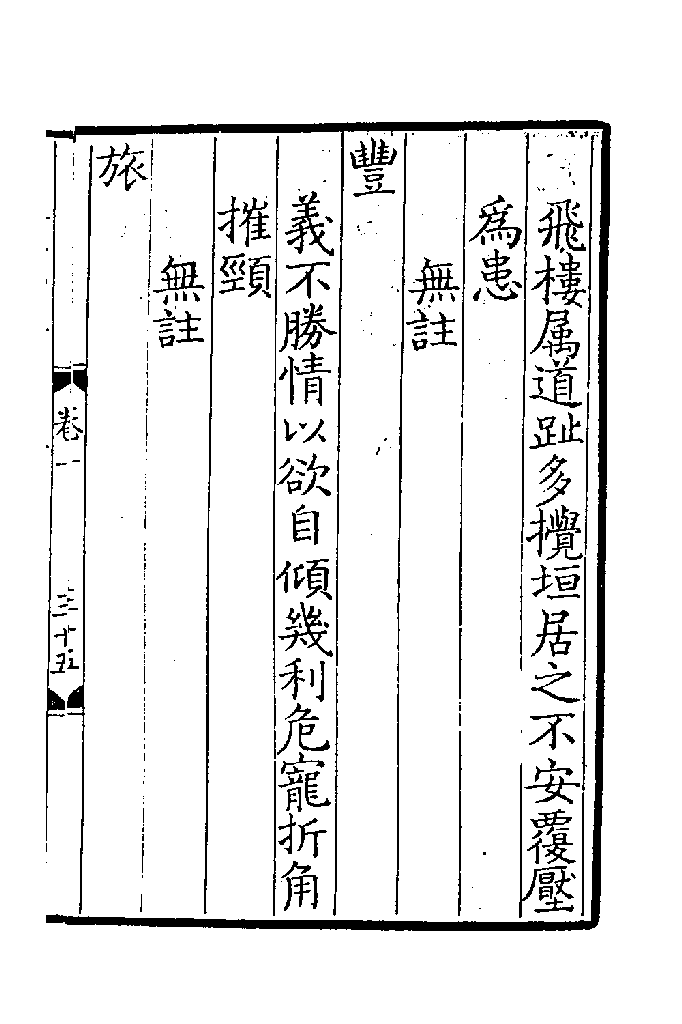 飛樓属道趾多攪垣居之不安覆壓
為患
無註
豐
義不勝情以欲自傾幾利危寵折角
摧頸
無註
旅
卷一
三十五